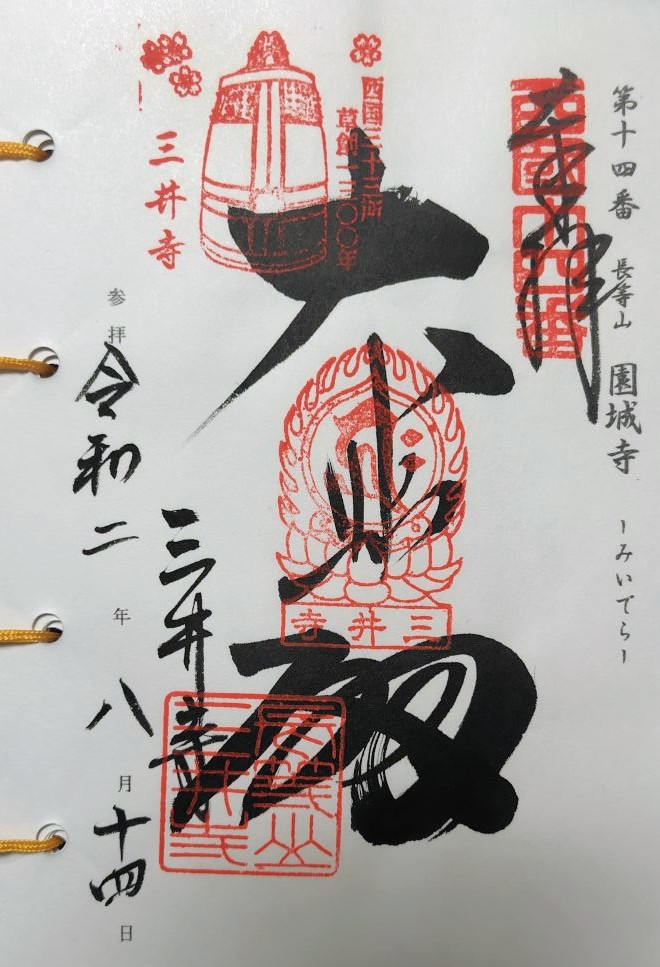 第十四番 長等山 園城寺 ーみいでらー
奉拝
西国十四番
西国三十三所
草創一三〇〇年
大悲殿
三井寺
三井寺
三井寺
参拝 令和二年八月十四日